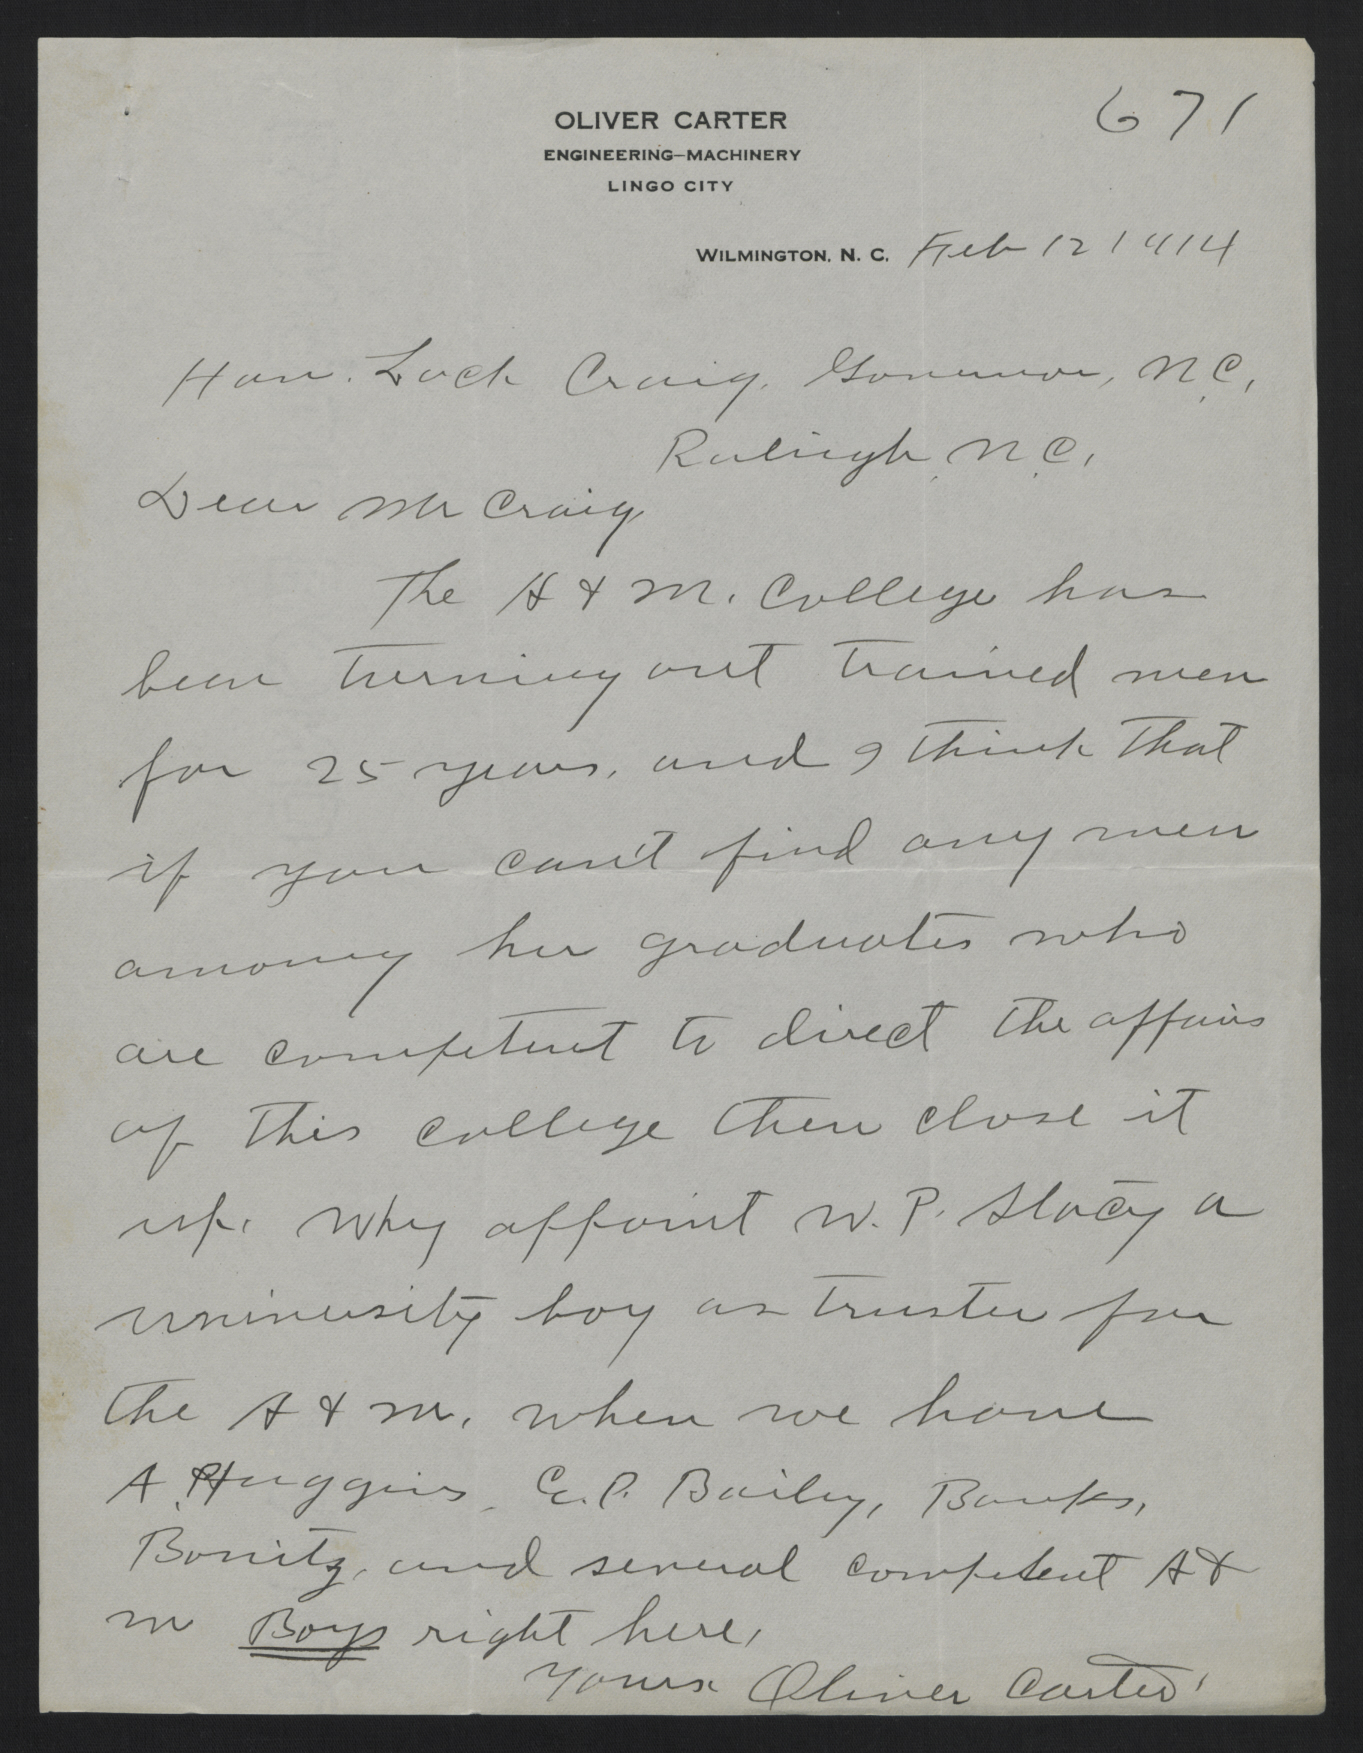 671
OLIVER CARTER
ENGINEERING–MACHINERY
LINGO CITY
WILMINGTON, N. C. Feb 12 1914
Hon. Lock Craig, Governor, N.C,
Raleigh, N.C,
Dear Mr Craig
The A & M. College has
been turning out trained men
for 25 years, and I think that
if you can't find any men
among her graduates who
are competent to direct the affairs
of this college then close it
up. Why appoint W. P. Stacy a
university boy as trustee for
the A & M. when we have
A. Huggins, E. P. Baily, Banks,
Bonitz, and several competent A &
M Boys right here,
Yours Oliver Carter